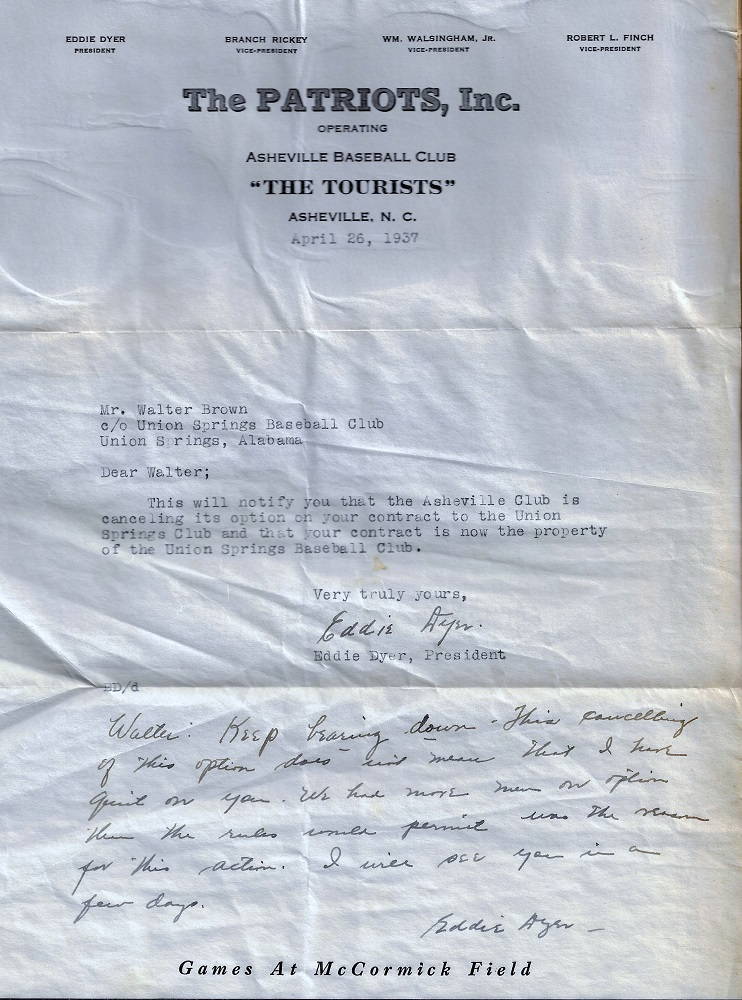 EDDIE DYER BRANCH RICKEY WM. WALSINGHAM, JR. ROBERT L. FINCH
PRESIDENT VICE-PRESIDENT VICE-PRESIDENT VICE-PRESIDENT
The PATRIOTS, Inc.
OPERATING
ASHEVILLE BASEBALL CLUB
"THE TOURISTS"
ASHEVILLE, N. C.
April 26, 1937
Mr. Walter Brown
c/o Union Springs Baseball Club
Union S rings, Alabama
Dear Walter;
This will notify you that the Asheville Club is
canceling its option on your contract to the Union
Springs Club and that your contract is now the property
of the Union Springs Baseball Club.
Very truly yours,
Eddie Dyer.
Eddie Dyer, President
ED/d
Walter: Keep bearing down - This cancelling
of this option does not mean that I have
quit on you. We had more men on option
than the rules would permit was the reason
for this action. I will see you in a
few days.
Eddie Dyer -
Games At McCormick Field